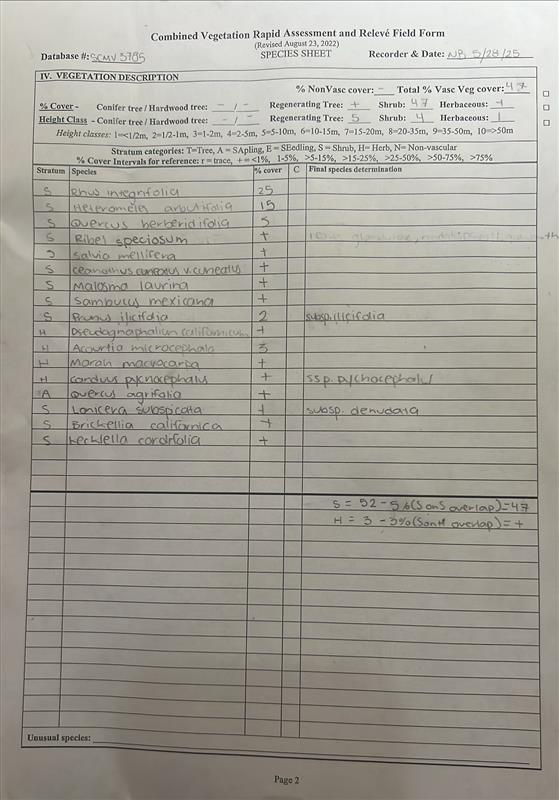 Combined Vegetation Rapid Assessment and Relevé Field Form
(Revised August 23, 2022)
Database #: SCMV3785 SPECIES SHEET Recorder & Date: NB 5/28/25
IV. VEGETATION DESCRIPTION
% NonVasc cover: - Total % Vasc Veg cover: 47
% Cover - Conifer tree / Hardwood tree: - / - Regenerating Tree: + Shrub: 47 Herbaceous: +
Height Class - Conifer tree / Hardwood tree: - / - Regenerating Tree: 5 Shrub: 4 Herbaceous: 1
Height classes: 1=<1/2m, 2=1/2-1m, 3=1-2m, 4=2-5m, 5=5-10m, 6=10-15m, 7=15-20m, 8=20-35m, 9=35-50m, 10=>50m
Stratum categories: T=Tree, A = SApling, E = SEedling, S = Shrub, H= Herb, N= Non-vascular
% Cover Intervals for reference: r = trace, + = <1%, 1-5%, >5-15%, >15-25%, >25-50%, >50-75%, >75%
Stratum Species % cover C Final species determination
S Rhus integrifolia 25
S Heteromeles arbutifolia 15
S Quercus berberidifolia 5
S Ribes speciosum +
S Salvia mellifera +
S Ceanothus cuneatus v. cuneatus +
S Malosma laurina +
S Sambucus mexicana +
S Prunus ilicifolia 2 subsp. ilicifolia
H Pseudognaphalium californicum +
H Acourtia microcephala 3
H Marah macrocarpa +
H Carduus pycnocephalus + ssp. pychocephalus
A Quercus agrifolia +
S Lonicera subspicata + subsp. denudata
S Brickellia californica +
S Keckiella cordifolia +
S = 52 - 5%(S on S overlap)=47
H = 3 - 3%(S on H overlap)= +
Unusual species:
Page 2